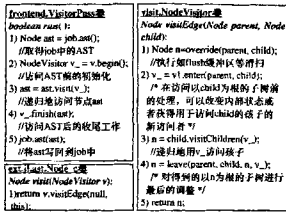 frontend.VisitorPass类
boolean run( ):
1) Node ast = job.ast();
//取得job中的AST
2) NodeVisitor v_ = v.begin();
//访问AST前的初始化
3) ast = ast.visit(v_);
//递归地访问节点ast
4) v_.finish(ast);
//访问AST后的收尾工作
5) job.ast(ast);
//将ast写回到job中
Node visit(NodeVisitor v):
1)return v.visitEdge(null,
this);
visit.NodeVisitor类
Node visitEdge(Node parent, Node
child):
1) Node n=override(parent, child);
//执行如flush缓冲区等清扫
2) v_ = v1.enter(parent, child);
/* 在访问以child为根的子树前
的处理，可以改变内部状态或
者获得用于访问child的孩子的
新访问者 */
3) n = child.visitChildren(v_);
//递归地用v_访问孩子
4) n = leave(parent, child, n, v_);
/* 对得到的以n为根的子树进行
最后的调整 */
5) return n;